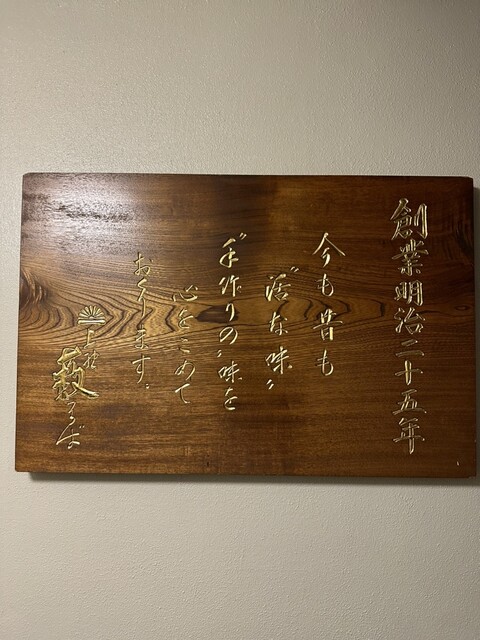 創業明治二十五年
今も昔も
"活な味"
"手作りの"味を
心をこめて
おくります。
上野
藪そば